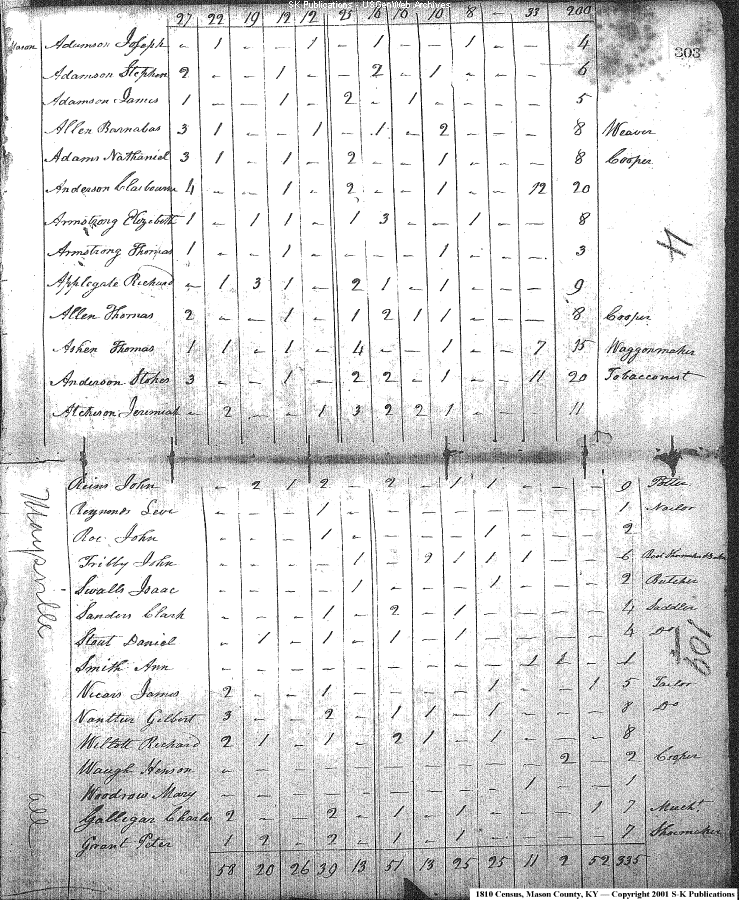 S-K Publications - USGenWeb Archives
27 22 19 12 12 25 16 10 10 8 - 33 200
Mason Adamson Joseph - 1 - - 1 - 1 - - 1 - - 4
303
Adamson Stephen 2 - - 1 - - 2 - 1 - - - 6
Adamson James 1 - - 1 - 2 - 1 - - - - 5
Allen Barnabas 3 1 - - 1 - 1 - 2 - - - 8 Weaver
Adams Nathaniel 3 1 - 1 - 2 - - 1 - - - 8 Cooper
Anderson Claibourn 4 - - 1 - 2 - - 1 - - 12 20
Armstrong Elizabeth 1 - 1 1 - 1 3 - - 1 - - 8
4
Armstrong Thomas 1 - - 1 - - - - 1 - - - 3
Applegate Richard - 1 3 1 - 2 1 - 1 - - - 9
Allen Thomas 2 - - 1 - 1 2 1 1 - - - 8 Cooper
Ashen Thomas 1 1 - 1 - 4 - - 1 - - 7 15 Waggonmaker
Anderson Stokes 3 - - 1 - 2 2 - 1 - - 11 20 Tobacconist
Atcheson Jeremiah - 2 - - 1 3 2 2 1 - - - 11
Maysville
Reins John - 2 1 2 - 2 - 1 1 - - - 9 Potter
Reynolds Levi - - - 1 - - - - - - - - 1 Nailor
Roe John - - - 1 - - - - 1 - - - 2
Tribby John - - - - 1 - 2 1 1 1 - - 6
Swalls Isaac - - - - 1 - - - 1 - - - 2 Butcher
Sanders Clark - - - 1 - 2 - 1 - - - - 4 Saddler
Stout Daniel - 1 - 1 - 1 - 1 - - - - 4 Do
109
Smith Ann - - - - - - - - - 1 1 - 1
Vicars James 2 - - 1 - - - - 1 - - 1 5 Tailor
Vanttur Gilbert 3 - - 2 - 1 1 - 1 - - - 8 Do
Richard 2 1 - 1 - 2 1 - 1 - - - 8
Waugh Henson - - - - - - - - - - 2 - 2 Cooper
Woodrow Mary - - - - - - - - - 1 - - 1
all
Gallegar Charles 2 - - 2 - 1 - 1 - - - 1 7 Mercht
Grant Peter 1 2 - 2 - 1 - 1 - - - - 7 Shoemaker
58 20 26 39 13 51 13 25 25 11 2 52 335
1810 Census, Mason County, KY — Copyright 2001 S-K Publications